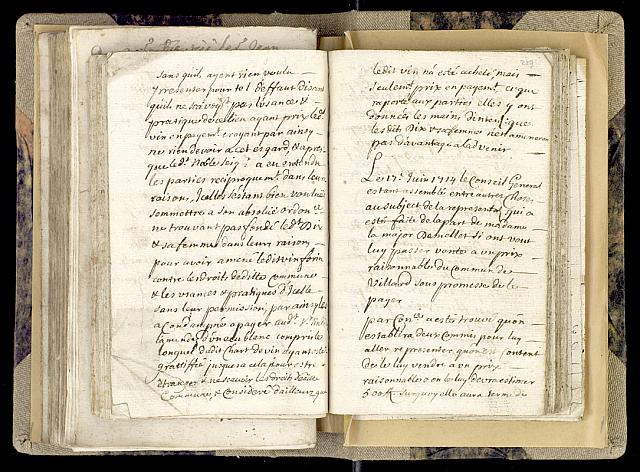 sans quil ayent rien voulu
rresenter pour tel deffaut disant
quils ne scavoyt pas lusances &
pratique dicellien ayant prix led.
vin en payemt. croyant par ainsy
ne rien devoir a cet esgard, & apres
que led. Noble seig. a eu entendu
les parties reciproquemt. dans leur
raison, Icelles sestant bien voulu
sommettre a son absolue ordon.ce
ne trouvant pas fondé led. Dix
& sa femme dans leur raison
pour avoir amené ledit vin forin
contre les droits dedite commune
& les usances & pratiques d'Icelle
sans leur permission, par ainsy les
a Condampnés a payer aud.
lamende dun ecu blanc compris le
longuel dudit Chart de vin ayant
gratiffié jusques a cela pour estre
estranger & ne scavoir les droits dedite
Commune, & Consideré dailleurs que
219
ledit vin na esté acheté mais
seulemt. prix en payemt. ce qui
raporté aux parties elles y ont
donné les mains dinteq: que
lesdits Dix & sa femme n'en ameneron
pas davantage a ladvenir
Le 17e. Juin 1714 le Conseil General
estant assemblé entre autres Choses
au subject de la representat. qui a
esté faite de la part de madame
la major Demellet si on vout
luy passer vente a un prix
raisonnable du Commun de
Villard sous promesse de le
payer
par Con.es a esté trouvé quon
establira deux Commis pour luy
aller representer quon est content
de le luy vendre a un prix
raisonnable ou on le luy devra estimer
500ff. surquoy elle aura terme de